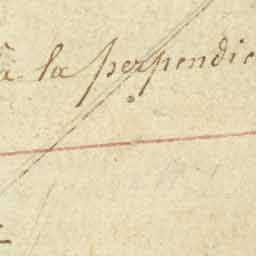 à la perpendic